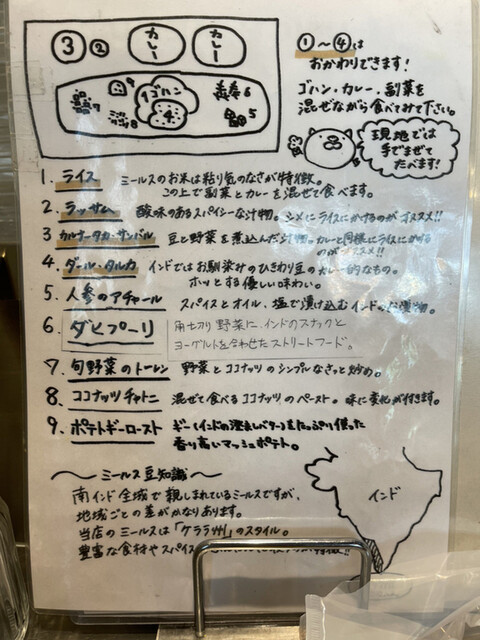 ③ ② カレー カレー
①ゴハン
4
9
7
8
6
5
①〜④は
おかわりできます!
ゴハン・カレー・副菜を
混ぜながら食べてみて下さい。
現地では
手でまぜて
たべます!
1. ライス ミールスのお米は粘り気のなさが特徴。
この上で副菜とカレーを混ぜて食べます。
2. ラッサム 酸味のあるスパイシーな汁物。シメにライスにかけるのがオススメ!!
3 カルナータカ・サンバル 豆と野菜を煮込んだ汁物。カレーと同様にライスにかける
のがオススメ!!
4. ダール・タルカ インドではお馴染みのひきわり豆のカレー的なもの。
ホッとする優しい味わい。
5. 人参のアチャール スパイスとオイル、塩で漬け込むインドのお漬物。
6. ダヒプーリ 角切り野菜に、インドのスナックと
ヨーグルトを合わせたストリートフード。
7. 旬野菜のトーレン 野菜とココナッツのシンプルなさっと炒め。
8. ココナッツチャトニ 混ぜて食べるココナッツのペースト。味に変化が付きます。
9. ポテトギーロースト ギー(インドの澄ましバター)をたっぷり使った
香り高いマッシュポテト。
〜ミールス豆知識〜
南インド全域で親しまれているミールスですが、
地域ごとの差がかなりあります。
当店のミールスは「ケララ州」のスタイル。
豊富な食材やスパイス 特徴!!
インド